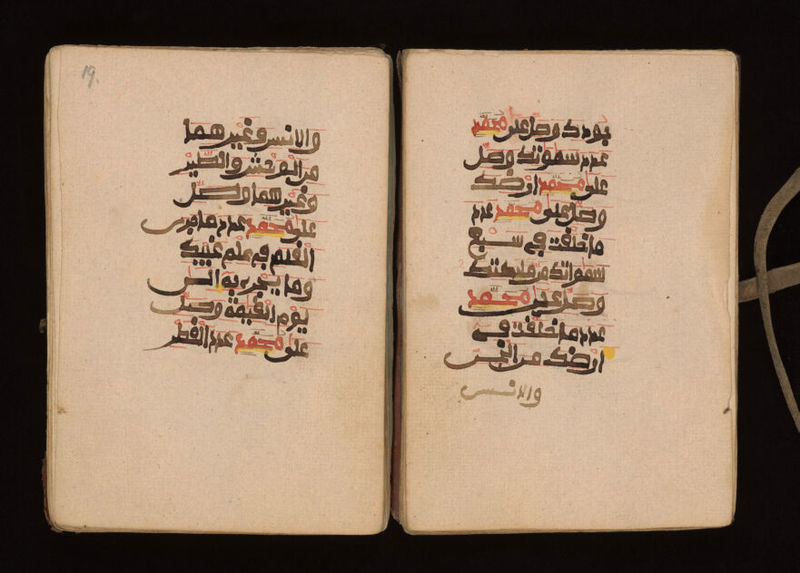 وصل على محمد
عدد سموتك وصل
على محمد ارضك
وصل على محمد عدد
ما خلقت في سبع
سموتك من مليكتك
وصل على محمد
عدد ما خلقت في
ارضك من الجن
والانس
19.
والانس وغيرهما
من الوحش والطير
وغيرهما وصل
على محمد عدد ما جرى
القلم في علم غيبك
وما يجري به الى
يوم القيمة وصل
على محمد عدد القطر